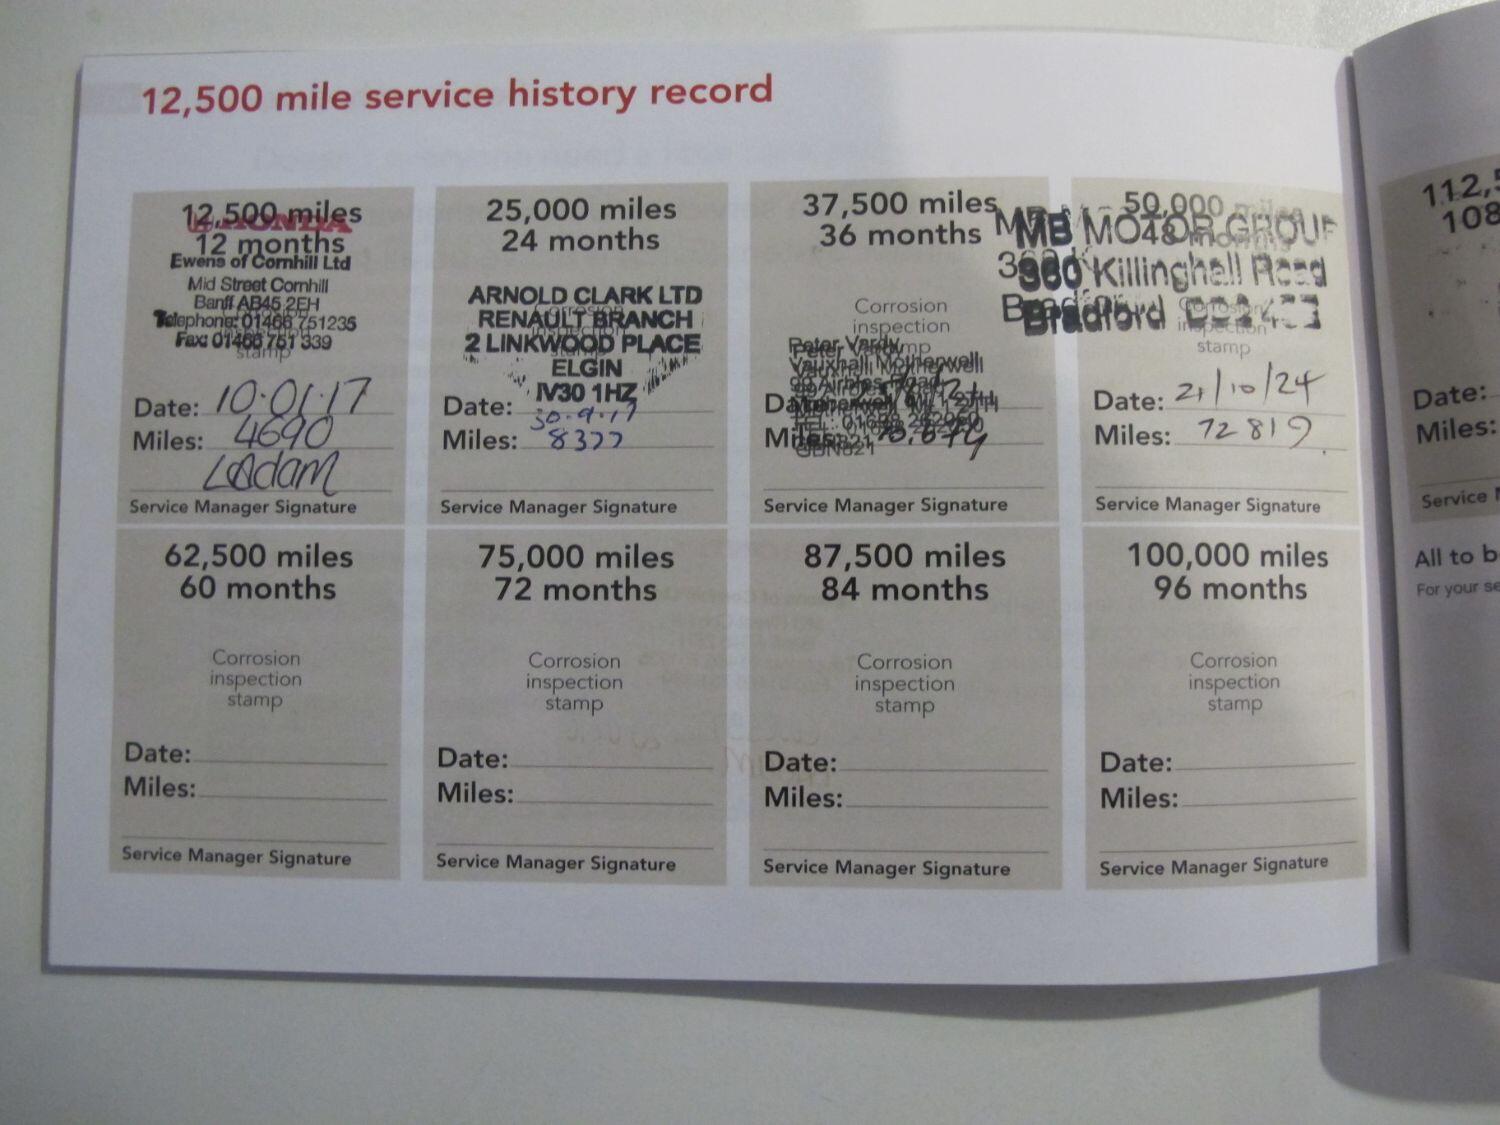 12,500 mile service history record
12,500 miles
HONDA
12 months
Ewens of Cornhill Ltd
Mid Street Cornhill
Banff AB45 2EH
Telephone: 01466 751235
Fax: 01466 751 339
stamp
Date: 10.01.17
Miles: 4690
LAdam
Service Manager Signature
25,000 miles
24 months
ARNOLD CLARK LTD
RENAULT BRANCH
2 LINKWOOD PLACE
ELGIN
IV30 1HZ
Date: 30-9-17
Miles: 8377
Service Manager Signature
37,500 miles
36 months
Corrosion
inspection
stamp
Peter Vardy
Vauxhall Motherwell
Motherwell
Date:
Miles:
GBN821
Service Manager Signature
50,000 miles
48 months
MB MOTOR GROUP
360 Killinghall Road
Bradford
Corrosion
inspection
stamp
Date: 21/10/24
Miles: 72819
Service Manager Signature
62,500 miles
60 months
Corrosion
inspection
stamp
Date:
Miles:
Service Manager Signature
75,000 miles
72 months
Corrosion
inspection
stamp
Date:
Miles:
Service Manager Signature
87,500 miles
84 months
Corrosion
inspection
stamp
Date:
Miles:
Service Manager Signature
100,000 miles
96 months
Corrosion
inspection
stamp
Date:
Miles:
Service Manager Signature
112,5
108
Date:
Miles:
Service
All to b
For your se